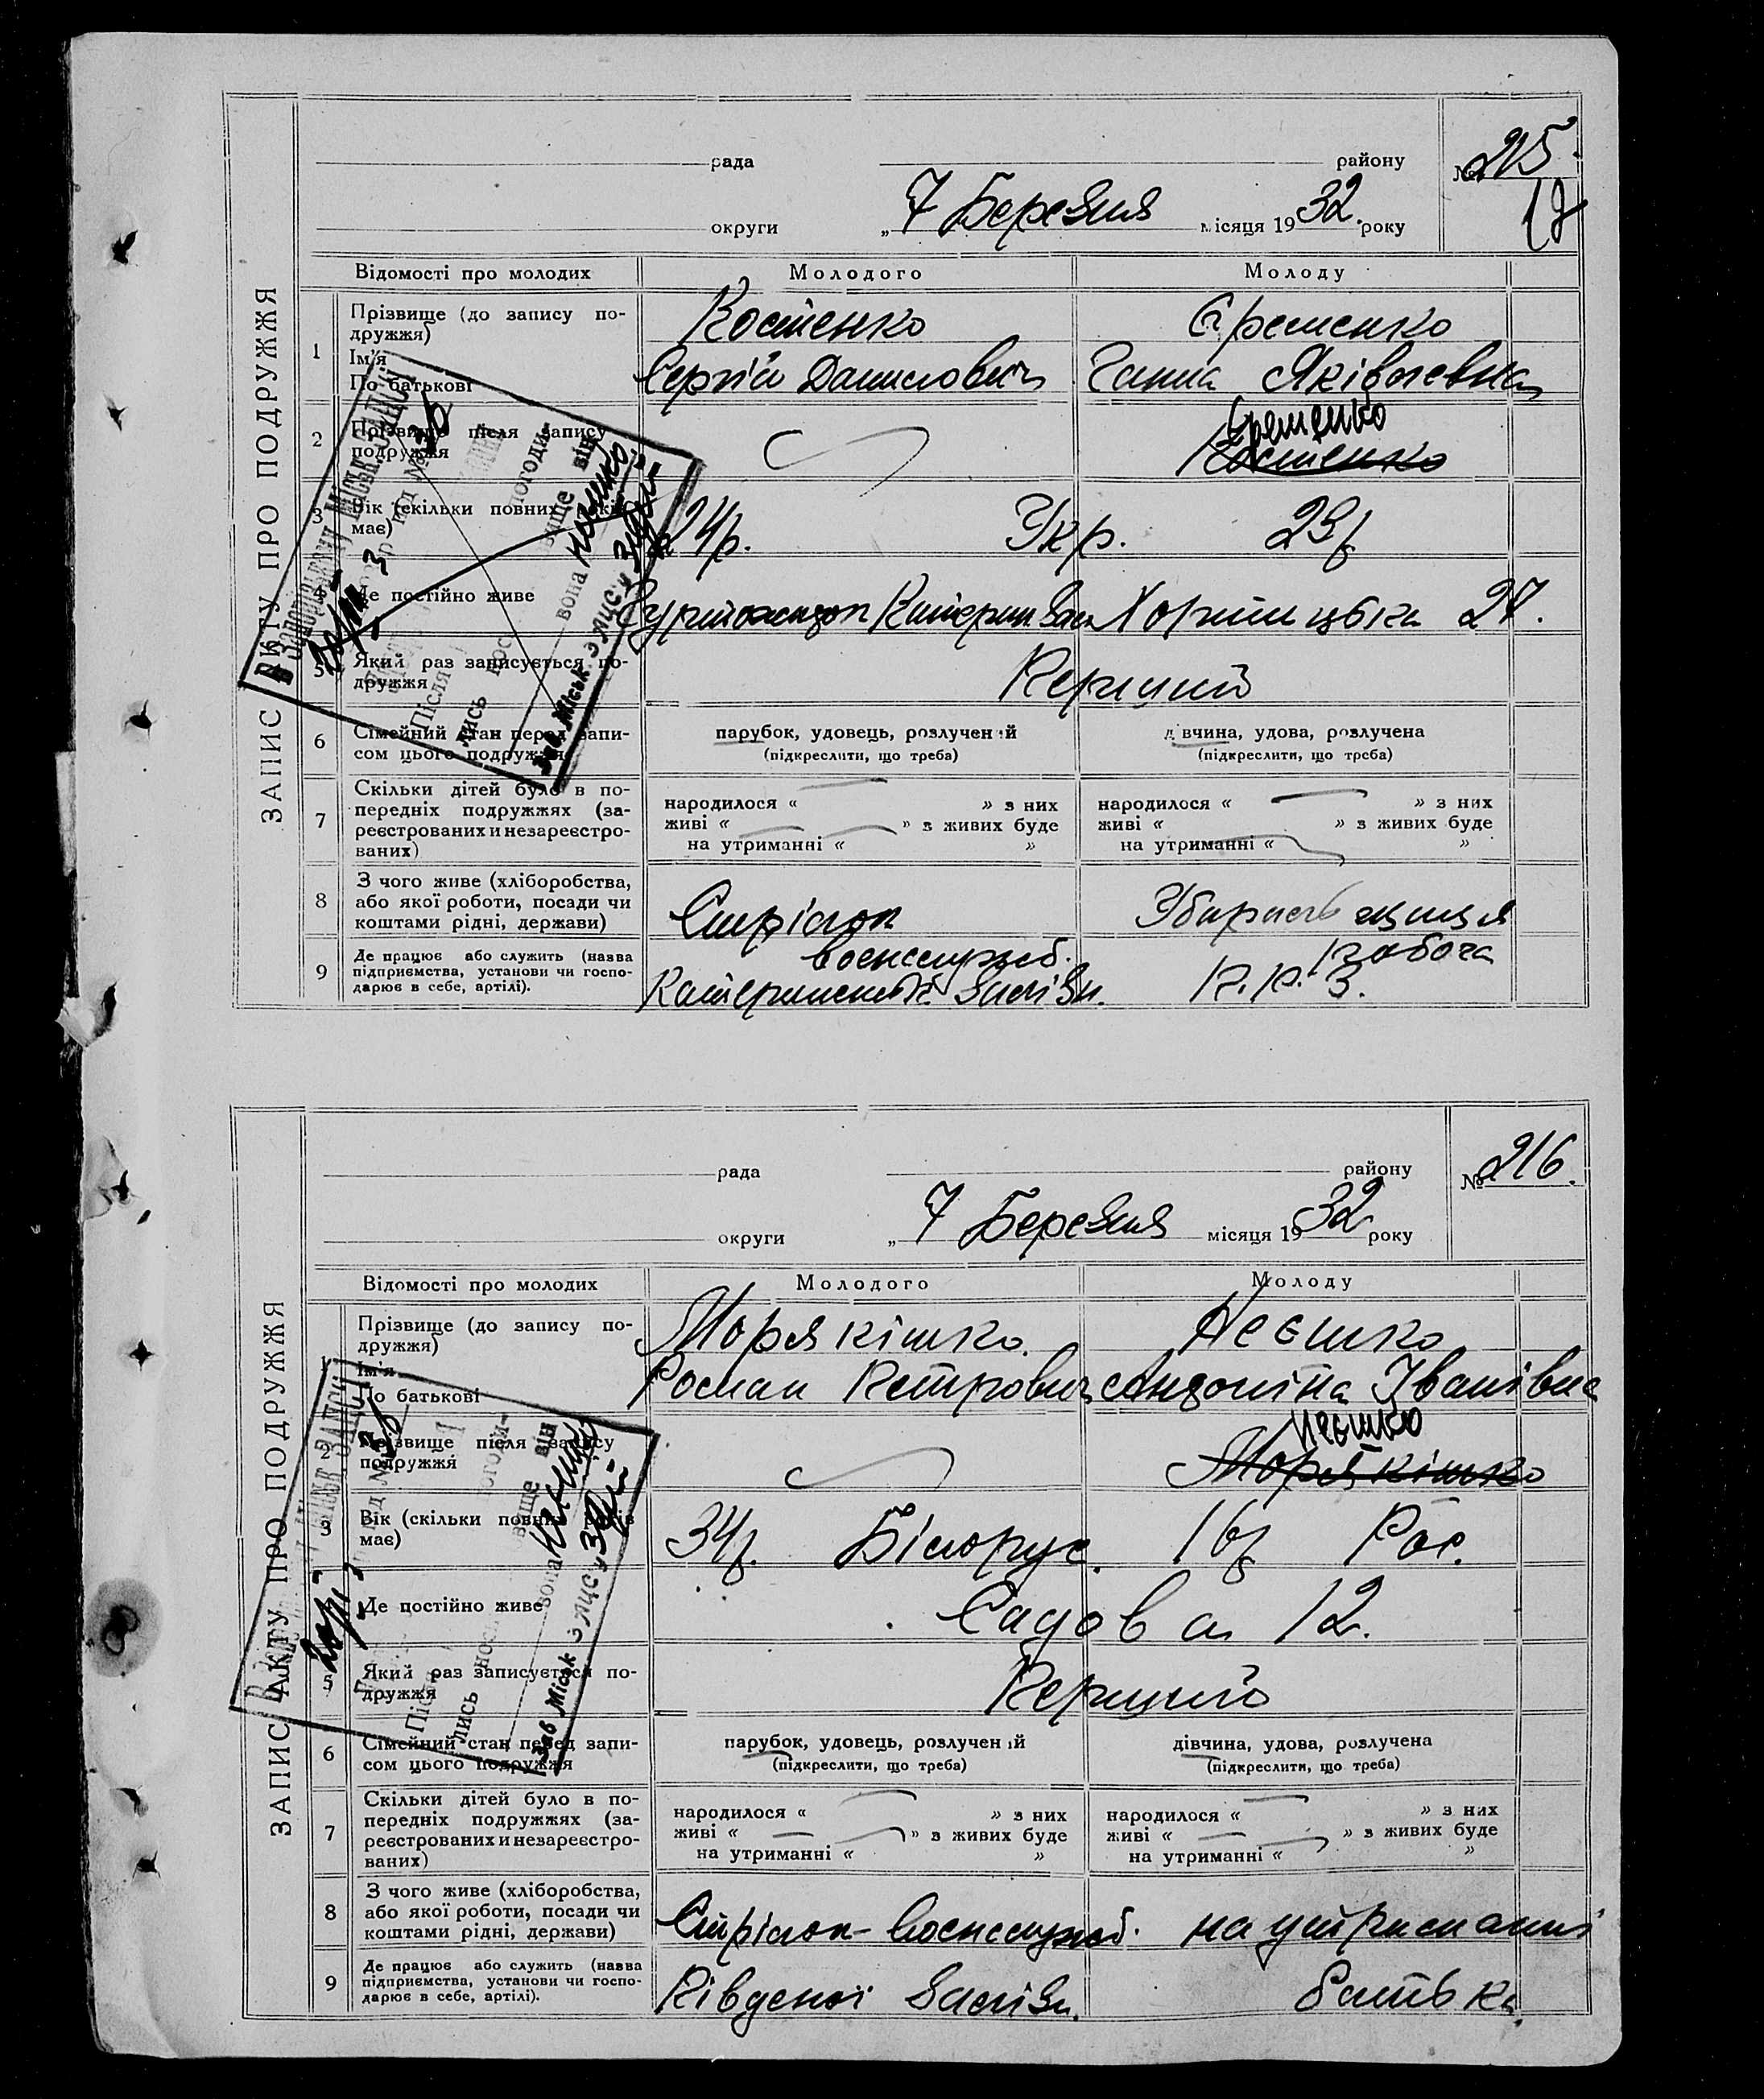 ЗАПИС АКТУ ПРО ПОДРУЖЖЯ
рада району № 215
округи „ 7 Березня місяця 1932 року
Відомості про молодих Молодого Молоду
1 Прізвище (до запису по-
дружжя)
Ім'я
По батькові
Костенко Єременко
Сергій Данилович Ганна Яківлевна
2 Прізвище після запису
подружжя
Єременко
Костенко
3 Вік (скільки повних років
має)
24р. Укр. 23р
4 Де постійно живе
Гуртожиток Катерин. Зал. Хортицька 27.
5 Який раз записується по-
дружжя
Перший
6 Сімейний стан перед запи-
сом цього подружжя
парубок, удовець, розлучений
(підкреслити, що треба)
дівчина, удова, розлучена
(підкреслити, що треба)
7 Скільки дітей було в по-
передніх подружжях (за-
реєстрованих и незареєстро-
ваних)
народилося « » з них
живі « » з живих буде
на утриманні « »
народилося « » з них
живі « » з живих буде
на утриманні « »
8 З чого живе (хліборобства,
або якої роботи, посади чи
коштами рідні, держави)
Стрілок
воєнслужб.
робоча
9 Де працює або служить (назва
підприємства, установи чи госпо-
дарює в себе, артілі).
Катерининської Залізн.
ЗАПИС АКТУ ПРО ПОДРУЖЖЯ
рада району № 216.
округи „ 7 Березня місяця 1932 року
Відомості про молодих Молодого Молоду
1 Прізвище (до запису по-
дружжя)
Ім'я
По батькові
Морякішко. Неєшко
Роман Петрович Андоліна Іванівна
2 Прізвище після запису
подружжя
Неєшко
Морякішко
3 Вік (скільки повних років
має)
34р. Білорус. 16р Рос.
Де постійно живе
Садова 12.
5 Який раз записується по-
дружжя
Перший
6 Сімейний стан перед запи-
сом цього подружжя
парубок, удовець, розлучений
(підкреслити, що треба)
дівчина, удова, розлучена
(підкреслити, що треба)
7 Скільки дітей було в по-
передніх подружжях (за-
реєстрованих и незареєстро-
ваних)
народилося « » з них
живі « » з живих буде
на утриманні « »
народилося « » з них
живі « » з живих буде
на утриманні « »
8 З чого живе (хліборобства,
або якої роботи, посади чи
коштами рідні, держави)
Стрілок-воєнслужб. на утриманні
9 Де працює або служить (назва
підприємства, установи чи госпо-
дарює в себе, артілі).
Південої Залізн. батька